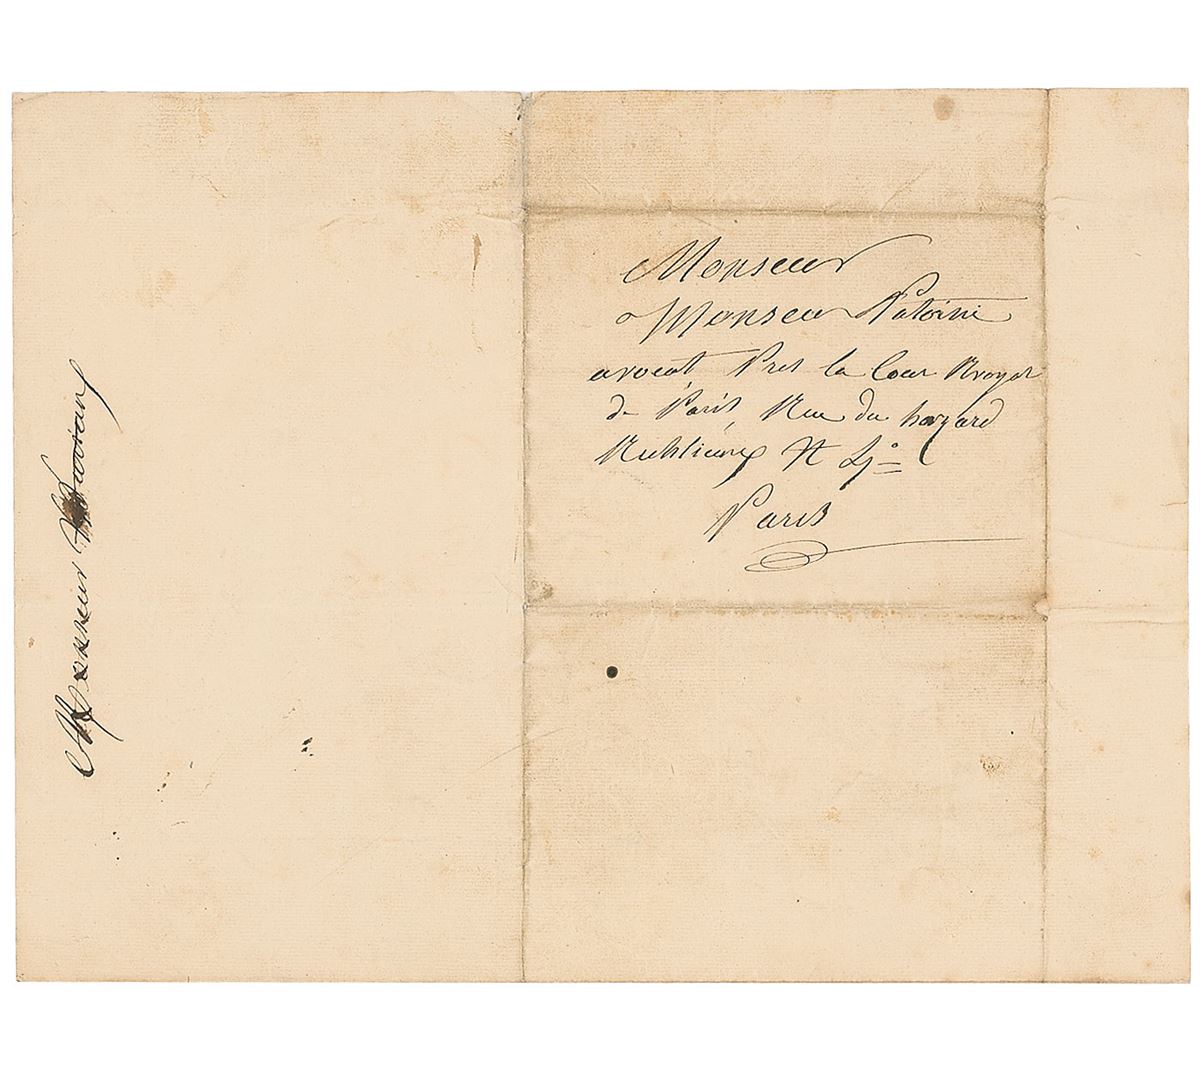 Monsieur
Monsieur Patorni
avocat Pres la Cour Royal
de Paris Rue du hazard
Paris
Monsieur